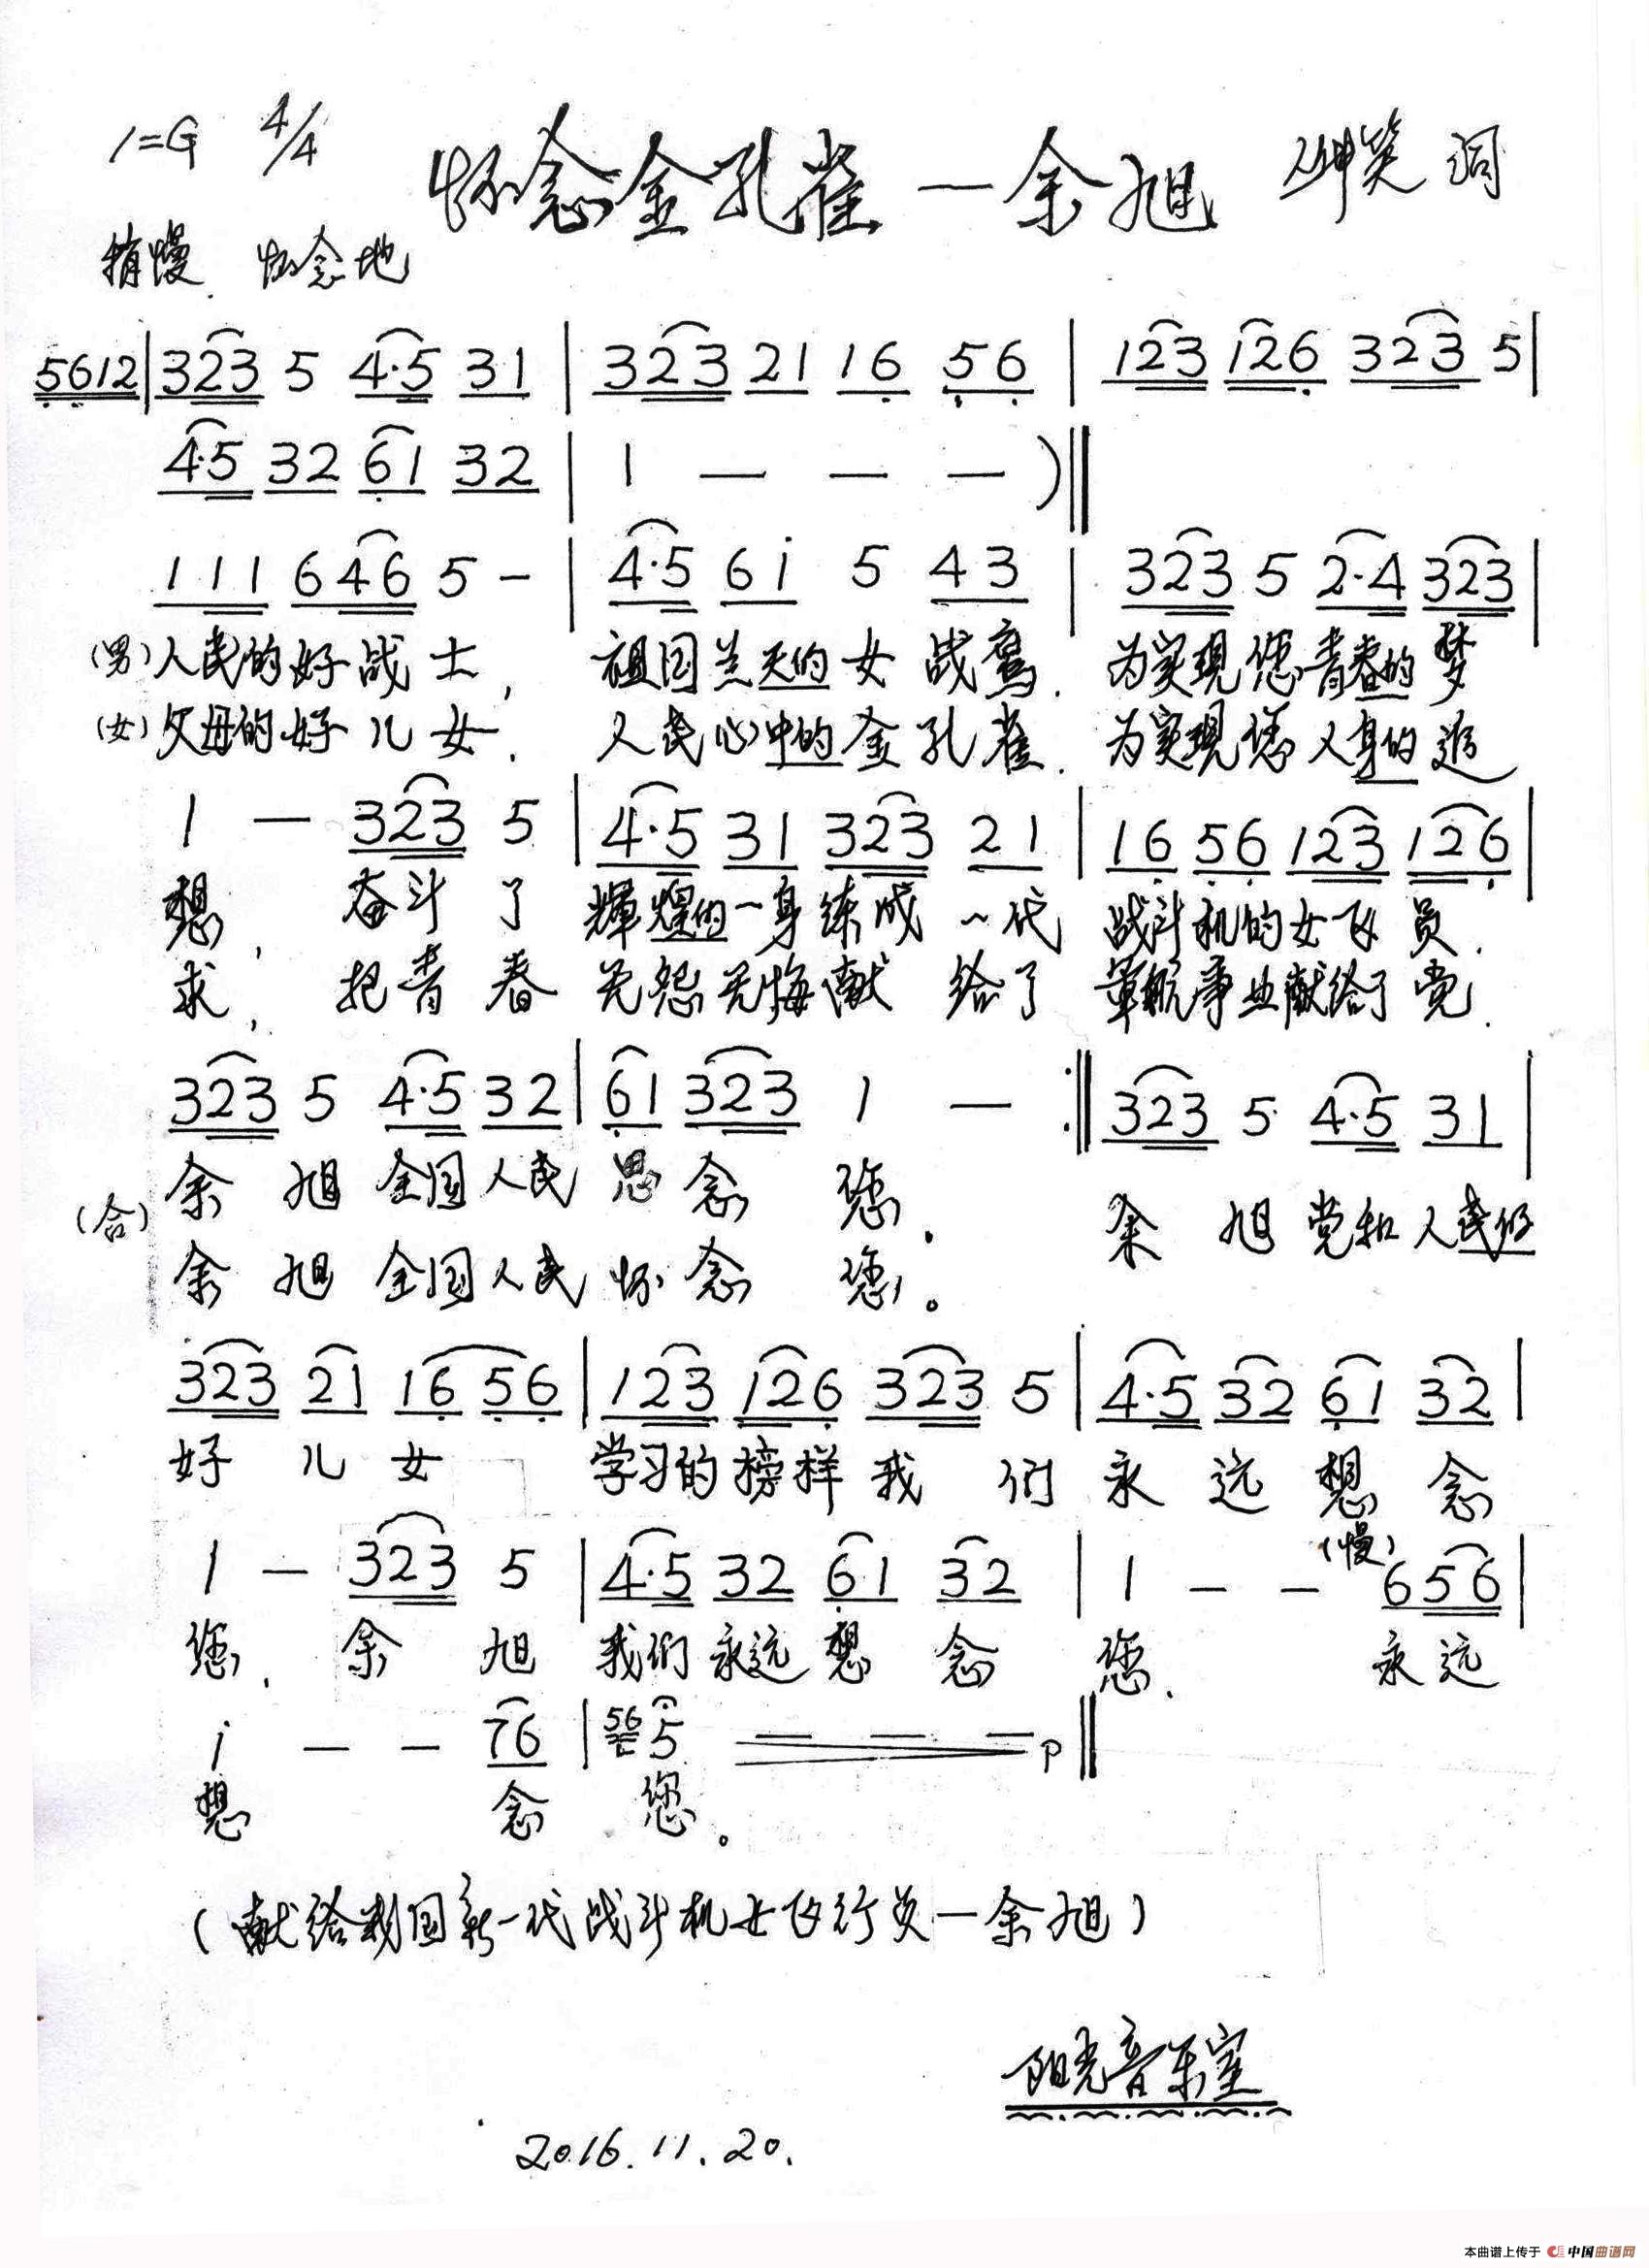 1=G 4/4 怀念金孔雀—余旭 词
稍慢 怀念地
5612|323 5 4·5 31 | 323 21 16 56 | 123 126 323 5|
4·5 32 61 32 | 1 — — — )‖
111 646 5 — | 4·5 6i 5 43 | 323 5 2·4 323|
(男)人民的好战士, 祖国兰天的女战鹰. 为实现您青春的梦
(女)父母的好儿女. 人民心中的金孔雀. 为实现您人身的追
1 — 323 5 | 4·5 31 323 21 | 16 56 123 126|
想, 奋斗了 辉煌的一身练成一代 战斗机的女飞员.
求, 把青春 无怨无悔献给了 军航事业献给了党.
323 5 4·5 32|61 323 1 — :‖ 323 5 4·5 31|
余旭全国人民思念您. 余旭党和人民的
(合)
余旭全国人民怀念您。
323 21 16 56 | 123 126 323 5 | 4·5 32 61 32|
好儿女 学习的榜样我们永远想念
(慢)
1 — 323 5 | 4·5 32 61 32 | 1 — — 656|
您. 余旭 我们永远想念 您. 永远
i — — 76 | 56 5 — — — p‖
想念您。
(献给我国新一代战斗机女飞行员—余旭)
阳光音乐室
2016.11.20.
本曲谱上传于 中国曲谱网